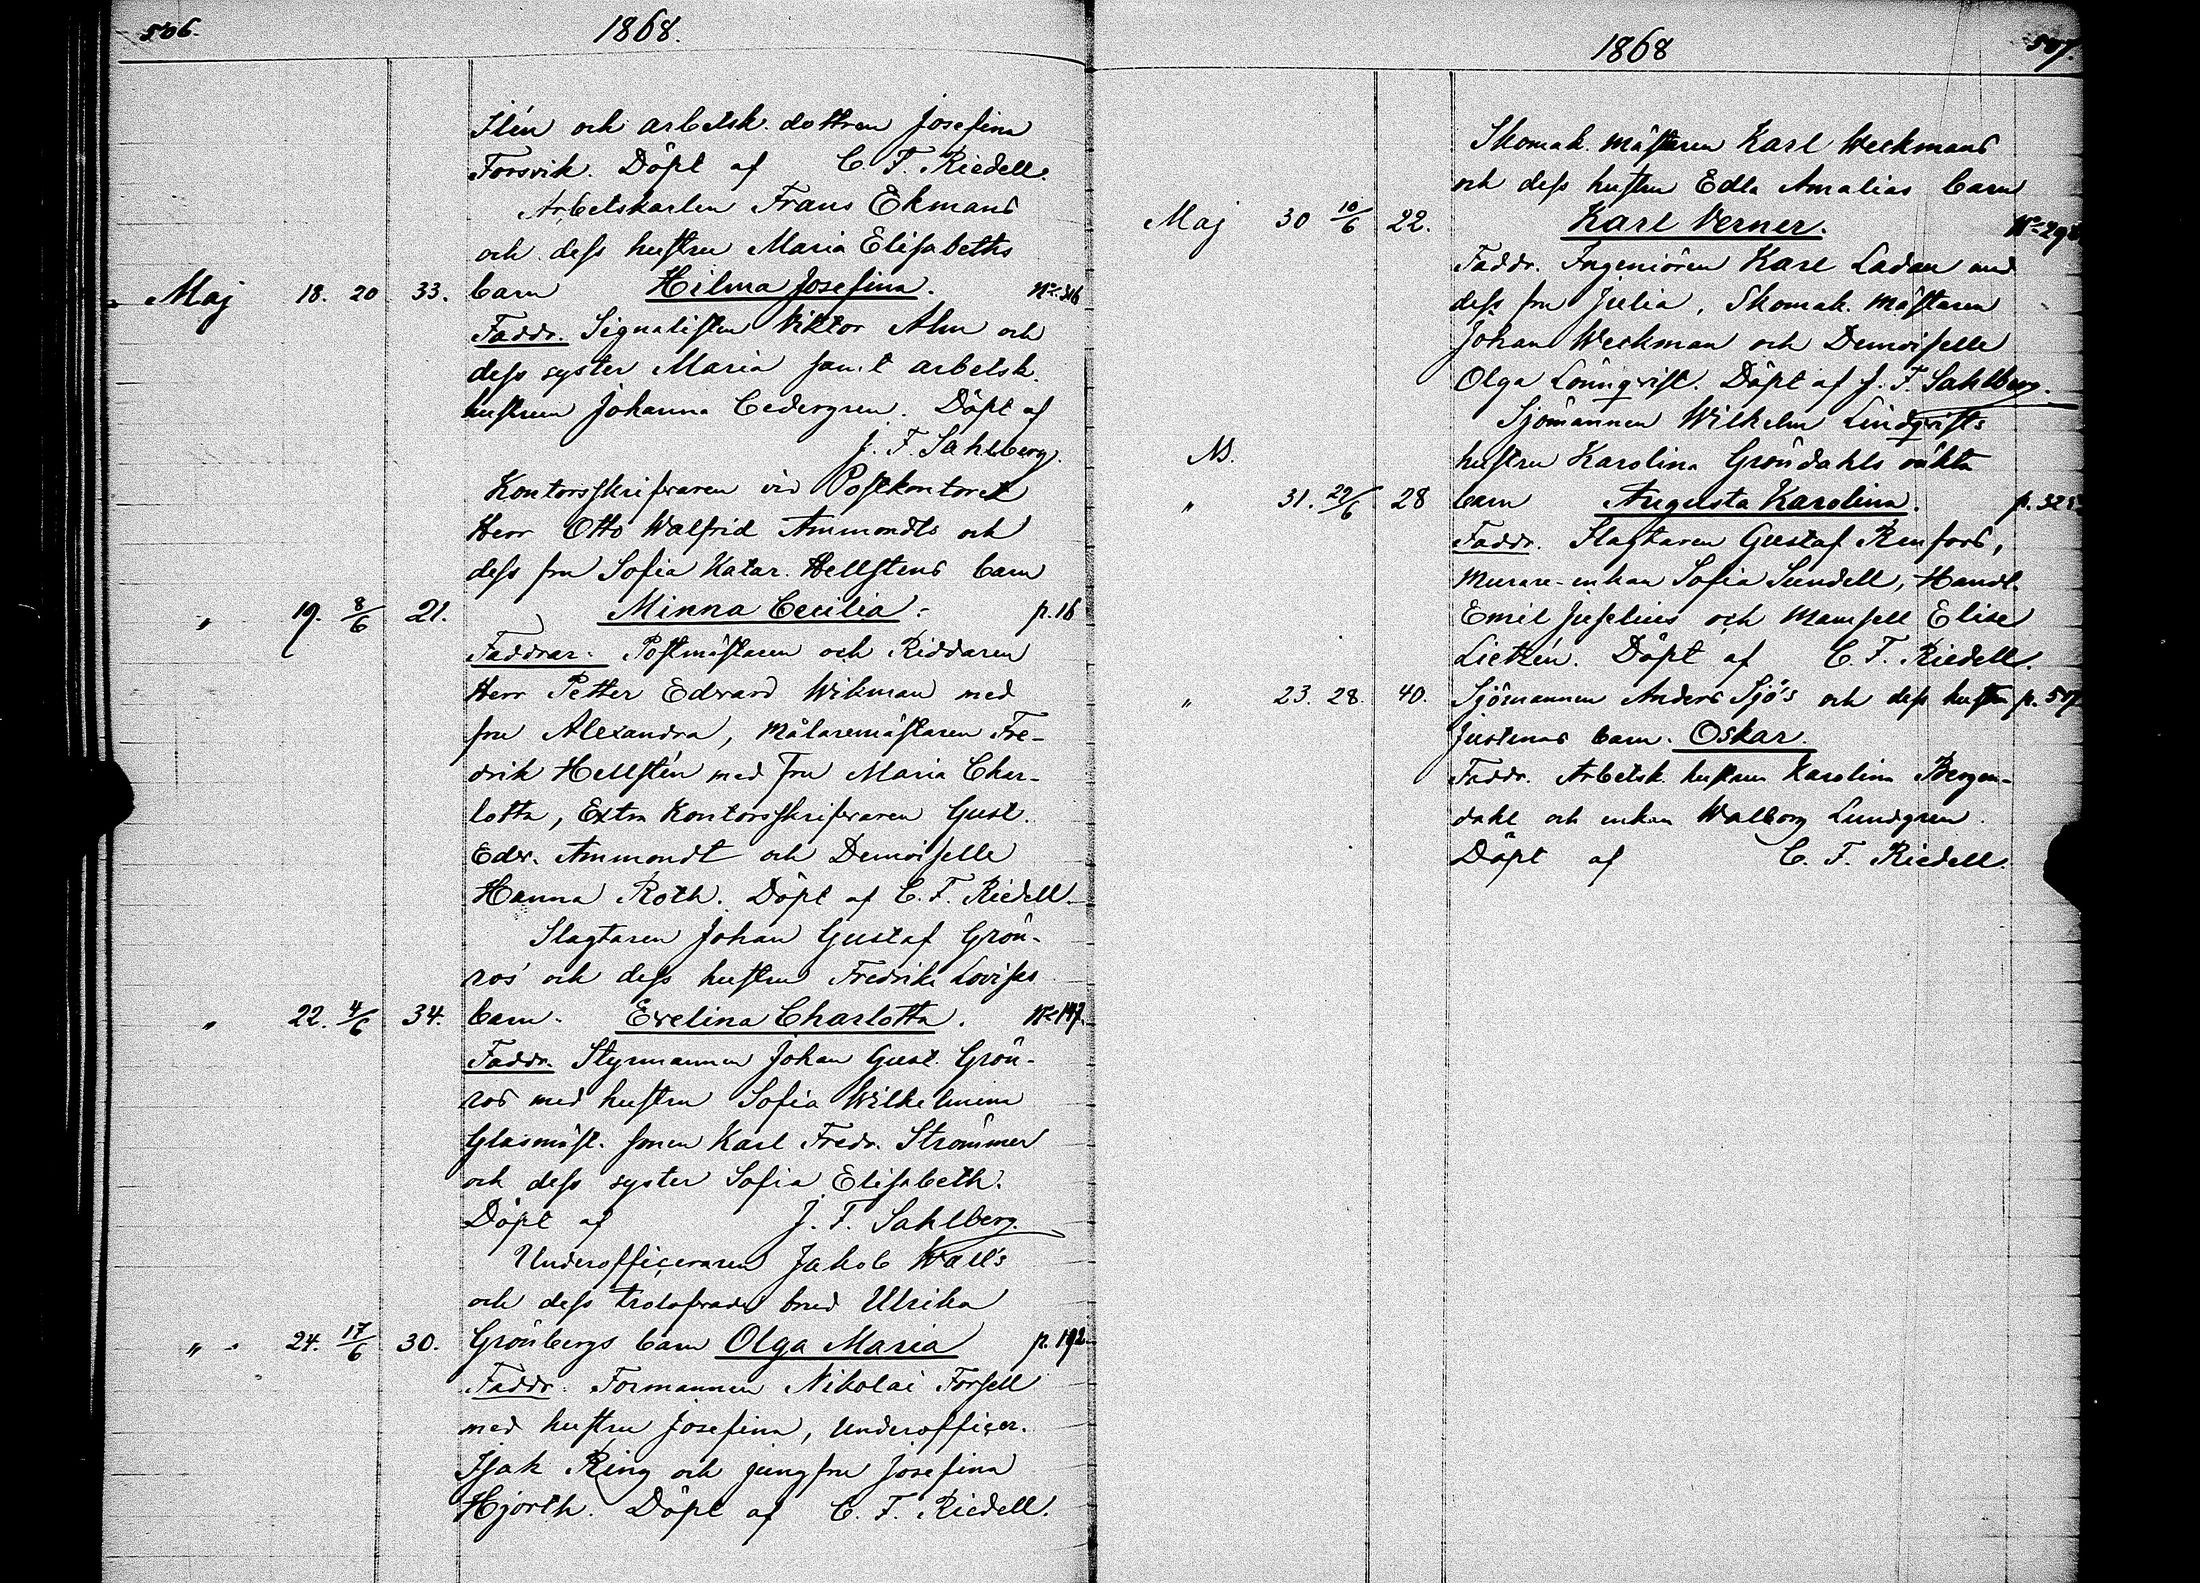 506.
1868.
Ilén och arbetsk. dottren Josefina
Forsvik. Döpt af C. F. Riedell.
Arbetskarlen Frans Ekmans
och dess hustru Maria Elisabeths
Maj 18. 20 33. barn Hilma Josefina. No 316
Faddr. Signalisten Viktor Alm och
dess syster Maria samt arbetsk.
hustrun Johanna Cedergren. Döpt af
J. F. Sahlberg.
Kontorsskrifvaren vid Postkontoret
Herr Otto Walfrid Ammondts och
dess fru Sofia Katar. Hellstens barn
" 19. 8/6 21. Minna Cecilia. p. 16
Faddrar. Postmästaren och Riddaren
Herr Petter Edvard Wikman med
fru Alexandra, Målaremästaren Fre-
drik Hellstén med fru Maria Char-
lotta, Extra Kontorsskrifvaren Gust.
Edv. Ammondt och Demoiselle
Hanna Roth. Döpt af C. F. Riedell.
Slagtaren Johan Gustaf Grön-
ros' och dess hustru Fredrika Lovisas
" 22. 4/6 34. barn Evelina Charlotta. No 147.
Faddr. Styrmannen Johan Gust. Grön-
ros med hustru Sofia Wilhelmina
Glasmäst. sonen Karl Fredr. Strömmer
och dess syster Sofia Elisabeth.
Döpt af J. F. Sahlberg.
Underofficeraren Jakob Wall's
och dess trolofvade brud Ulrika
" 24. 17/6 30. Grönbergs barn Olga Maria p. 192
Faddr. Formannen Nikolai Forsell
med hustru Josefina, Underofficer.
Isak Ring och jungfru Josefina
Hjorth. Döpt af C. F. Riedell.
1868
507.
Skomak. mästaren Karl Weckmans
och dess hustru Edla Amalias barn
Maj 30 10/6 22. Karl Verner. No 29
Faddr. Ingeniören Karl Ladau med
dess fru Julia, Skomak. mästaren
Johan Weckman och Demoiselle
Olga Lönnqvist. Döpt af J. F. Sahlberg.
Sjömannen Wilhelm Lindqvists
hustru Karolina Gröndahls oäkta
" 31. 29/6 28 barn Augusta Karolina. p. 325
Faddr. Slagtaren Gustaf Renfors,
Murare-enkan Sofia Sundell, Handl.
Emil Juselius och Mamsell Elise
Lietzén. Döpt af C. F. Riedell.
" 23. 28. 40. Sjömannen Anders Sjö's och dess hustru p. 517
Justinas barn. Oskar.
Faddr. Arbetsk. hustrun Karolina Bergen-
dahl och enkan Walborg Lundgren.
Döpt af C. F. Riedell.